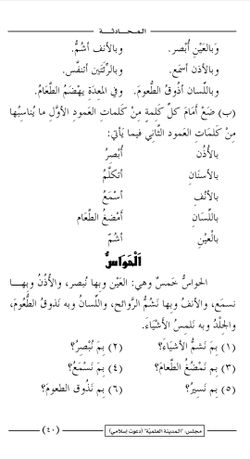 المحادثة
وبالعَيْنِ أُبْصِر. وبالأنف أشُمُّ.
وبالأذن أسْمَع. وبالرِّئتَين أتنفَّس.
وباللِّسان أذُوقُ الطُّعومَ. وفي المعِدَةِ يهْضَمُ الطَّعامُ.
(ب) ضَعْ أمَامَ كلِّ كلِمةٍ مِنْ كلماتِ العَمودِ الأوَّلِ ما يُناسِبُها
مِنْ كلمَاتِ العمود الثَّانِي فيما يَأتِي:
بالأذُن أُبْصِرُ
بالأسنَانِ أتكلَّمُ
بالأنْفِ أسْمَعُ
باللِّسَانِ أمْضَغُ الطَّعام
بالْعيْنِ أشمّ
اَلْحَوَاسُّ
الحواسُّ خَمسٌ وهي: العَيْن وبها نُبصر، والأُذُن وبها
نسمَع، والأنف وبها نَشُمُّ الرَّوائح، واللِّسان وبه نَذوقُ الطُّعُومَ،
والجِلْدُ وبه نَلمِسُ الأشْيَاءَ.
(١) بِمَ نَشمُّ الأشْيَاءَ؟ (٢) بِمَ نُبْصِرُ؟
(٣) بِمَ نَمْضُغُ الطَّعامَ؟ (٤) بِمَ نَسْمَعُ؟
(٥) بِمَ نَسِيرُ؟ (٦) بِمَ نَذُوق الطعومَ؟
مجلس: "المدينة العلمية" (دعوت إسلامي) (٤٠)